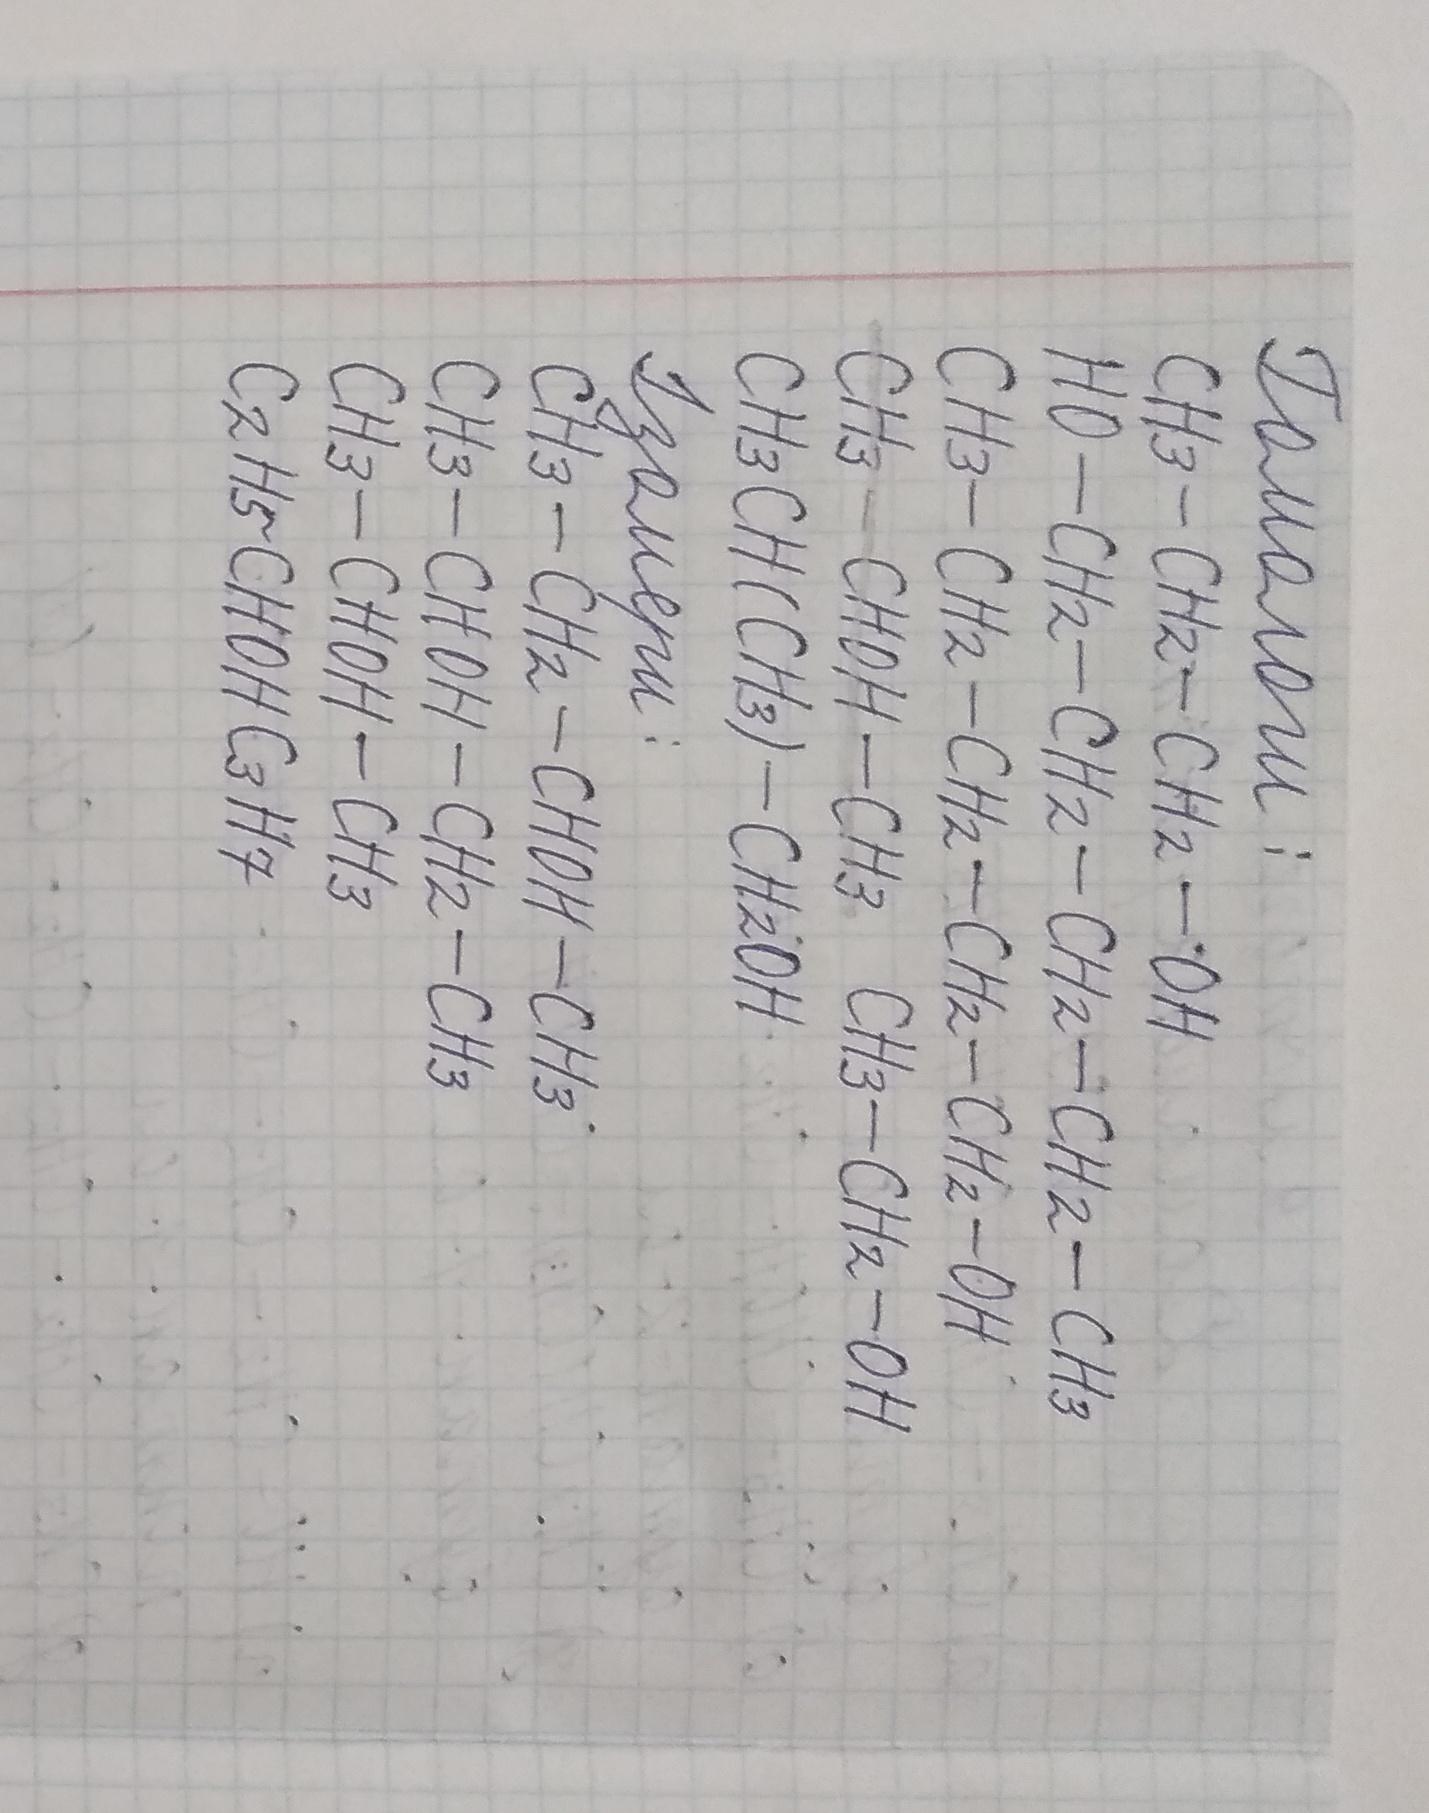 Гомологи:
CH3-CH2-CH2-OH
HO-CH2-CH2-CH2-CH2-CH3
CH3-CH2-CH2-CH2-CH2-OH
CH3-CHOH-CH3 CH3-CH2-OH
CH3CH(CH3)-CH2OH
Ізомери:
CH3-CH2-CHOH-CH3
CH3-CHOH-CH2-CH3
CH3-CHOH-CH3
C2H5CHOHC3H7